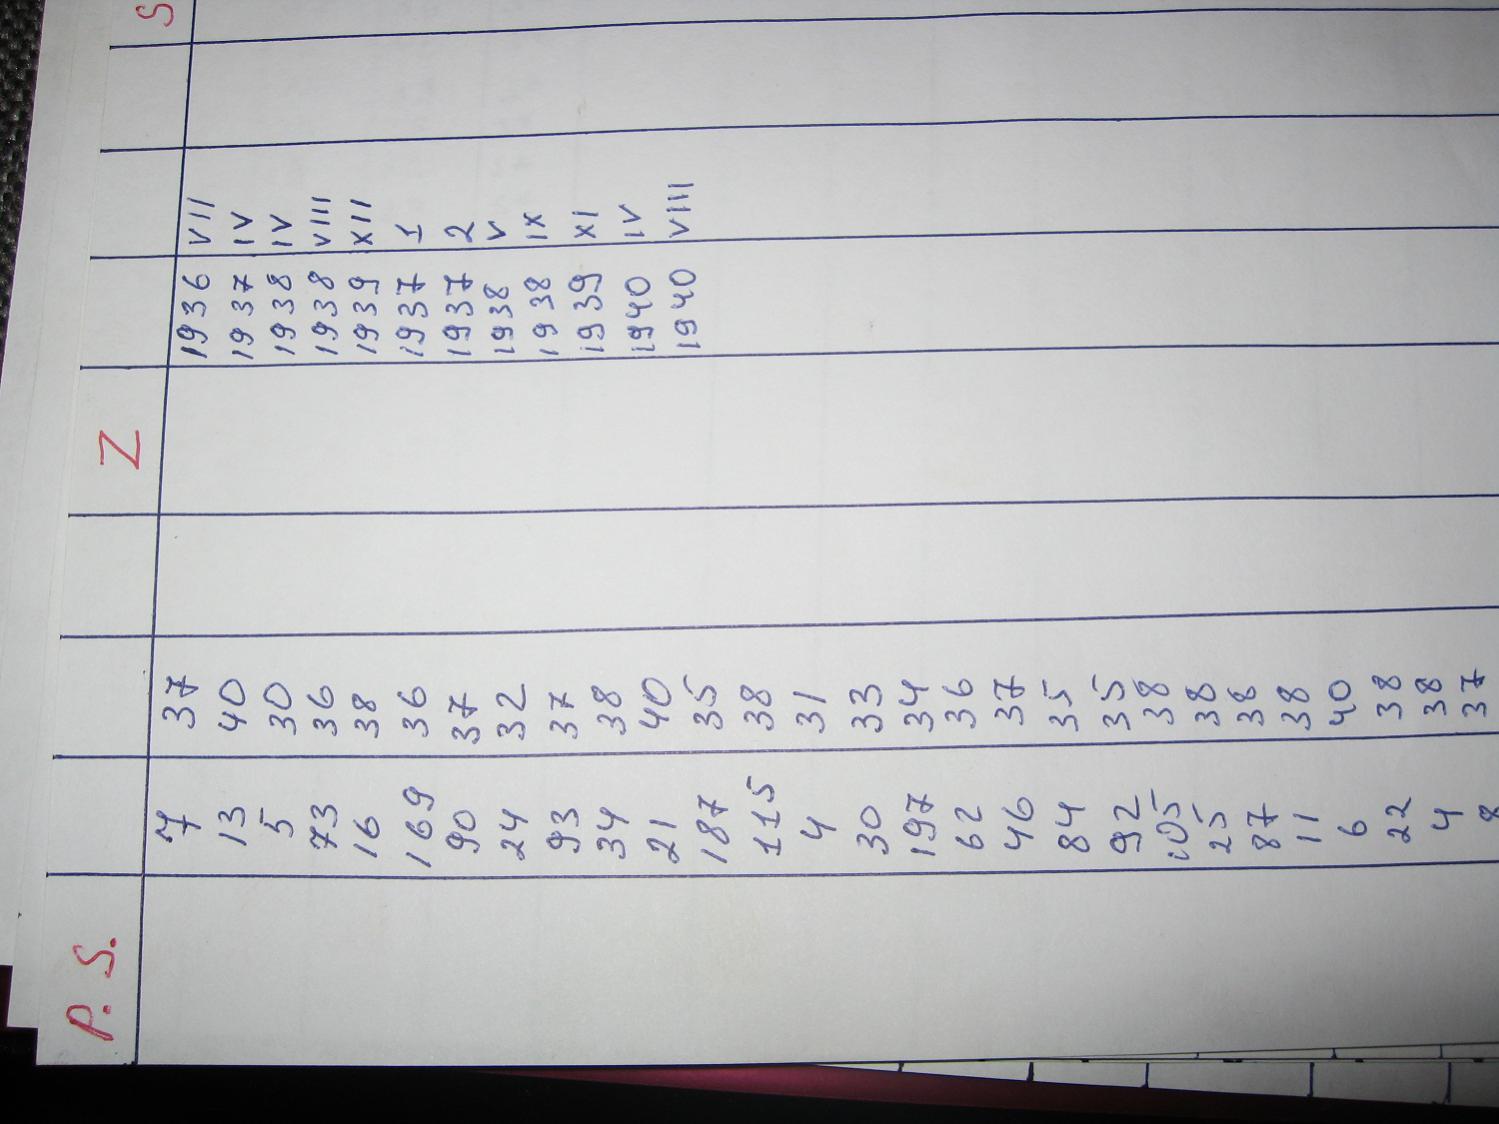 P. S. Z S
7 37 1936 VII
13 40 1937 IV
5 30 1938 IV
73 36 1938 VIII
16 38 1939 XII
169 36 1937 1
90 37 1937 2
24 32 1938 V
93 37 1938 IX
34 38 1939 XI
21 40 1940 IV
187 35 1940 VIII
115 38
4 31
30 33
197 34
62 36
46 37
84 35
92 35
105 38
25 38
87 38
11 38
6 40
22 38
4 38
8 37